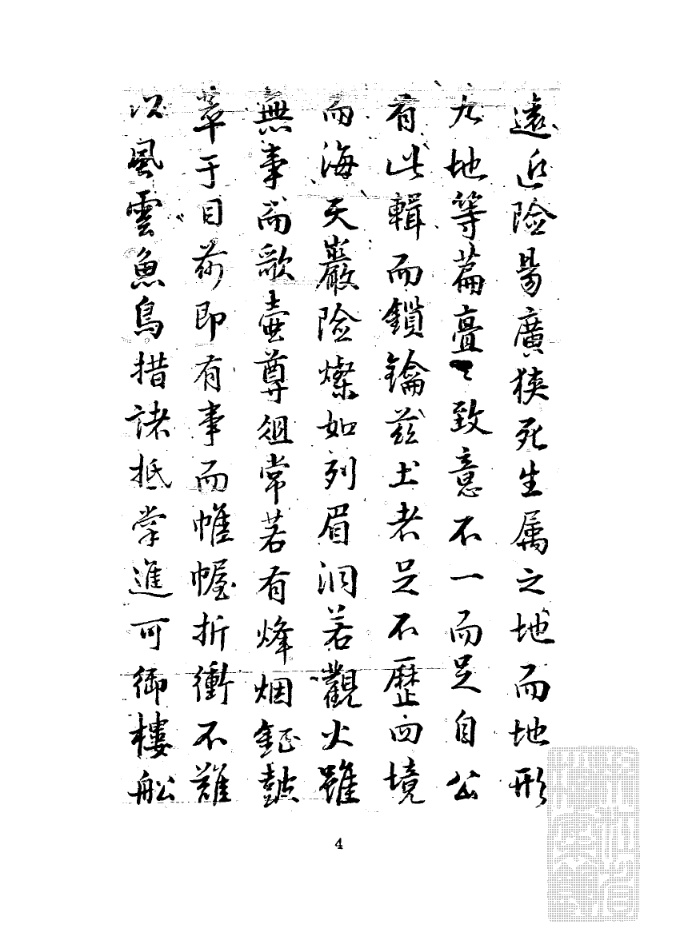 遠近險易廣狹死生属之地而地形
九地等篇亹〻致意不一而足自公
有此輯而鎖鑰兹土者足不歷四境
而海天巖險燦如列眉洞若觀火雖
無事而歌壺尊俎常若有烽烟鉦鼓
萃于目前即有事而帷幄折衝不難
以風雲魚鳥措諸抵掌進可御樓船
4